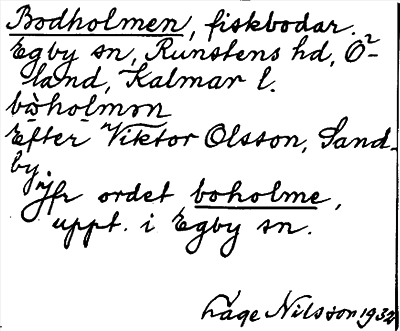 Bodholmen, fiskbodar.
Egby sn, Runstens hd, Ö-
land, Kalmar l.
bòholmən
Efter Viktor Olsson, Sand-
by.
Jfr ordet boholme,
uppt. i Egby sn.
Låge Nilsson 1932